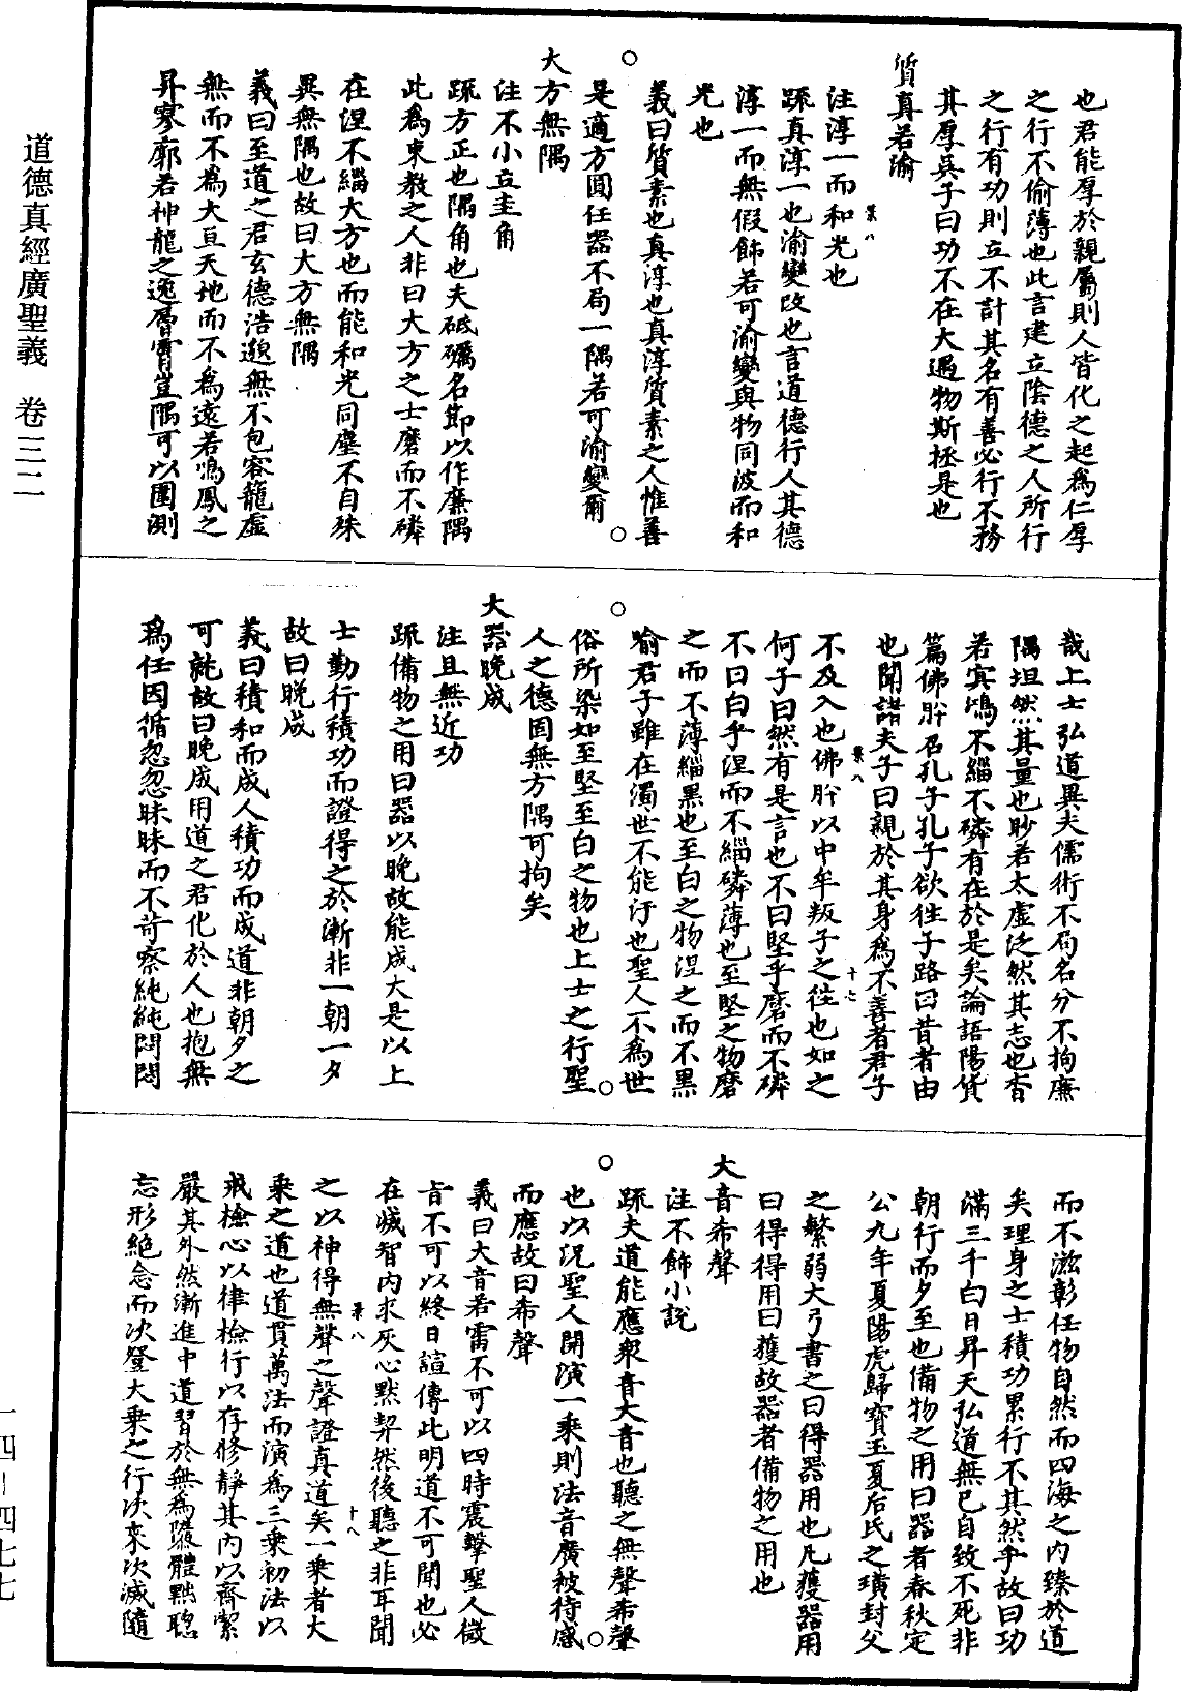 道德真經廣聖義　卷三二
也君能厚於親屬則人皆化之起爲仁厚
之行不偷薄也此言建立陰德之人所行
之行有功則立不計其名有善必行不務
其厚吳子曰功不在大遇物斯拯是也
質真若渝
注淳一而和光也
疏真淳一也渝變改也言道德行人其德
淳一而無假飾若可渝變與物同波而和
光也
義曰質素也真淳也真淳質素之人惟善
是適方圓任器不局一隅若可渝變爾
大方無隅
注不小立圭角
疏方正也隅角也夫砥礪名節以作廉隅
此爲束教之人非曰大方之士磨而不磷
在涅不緇大方也而能和光同塵不自殊
異無隅也故曰大方無隅
義曰至道之君玄德浩邈無不包容籠虛
無而不爲大亘天地而不爲遠若鳴鳳之
昇寥廓若神龍之逸層霄豈隅可以圍測
哉上士弘道異夫儒術不局名分不拘廉
隅坦然其量也眇若太虛泛然其志也杳
若冥鴻不緇不磷有在於是矣論語陽貨
篇佛肸召孔子孔子欲往子路曰昔者由
也聞諸夫子曰親於其身爲不善者君子
不及入也佛肸以中牟叛子之往也如之
何子曰然有是言也不曰堅乎磨而不磷
不曰白乎涅而不緇磷薄也至堅之物磨
之而不薄緇黑也至白之物涅之而不黑
喻君子雖在濁世不能汙也聖人不爲世
俗所染如至堅至白之物也上士之行聖
人之德固無方隅可拘矣
大器晚成
注且無近功
疏備物之用曰器以晚故能成大是以上
士勤行積功而證得之於漸非一朝一夕
故曰晚成
義曰積和而成人積功而成道非朝夕之
可就故曰晚成用道之君化於人也抱無
爲任因循忽忽昧昧而不苛察純純悶悶
而不滋彰任物自然而四海之内臻於道
矣理身之士積功累行不其然乎故曰功
滿三千白日昇天弘道無已自致不死非
朝行而夕至也備物之用曰器者春秋定
公九年夏陽虎歸寶玉夏后氏之璜封父
之繁弱大弓書之曰得器用也凡獲器用
曰得得用曰獲故器者備物之用也
大音希聲
注不飾小說
疏夫道能應衆音大音也聽之無聲希聲
也以況聖人開演一乘則法音廣被待感
而應故曰希聲
義曰大音若雷不可以四時震擊聖人微
旨不可以終日諠傳此明道不可聞也必
在滅智内求灰心默契然後聽之非耳聞
之以神得無聲之聲證真道矣一乘者大
乘之道也道貫萬法而演爲三乘初法以
戒檢心以律檢行以存修靜其内以齋潔
嚴其外然漸進中道習於無爲隳體黜聰
忘形絶念而次登大乘之行次來次滅隨
一四—四七七